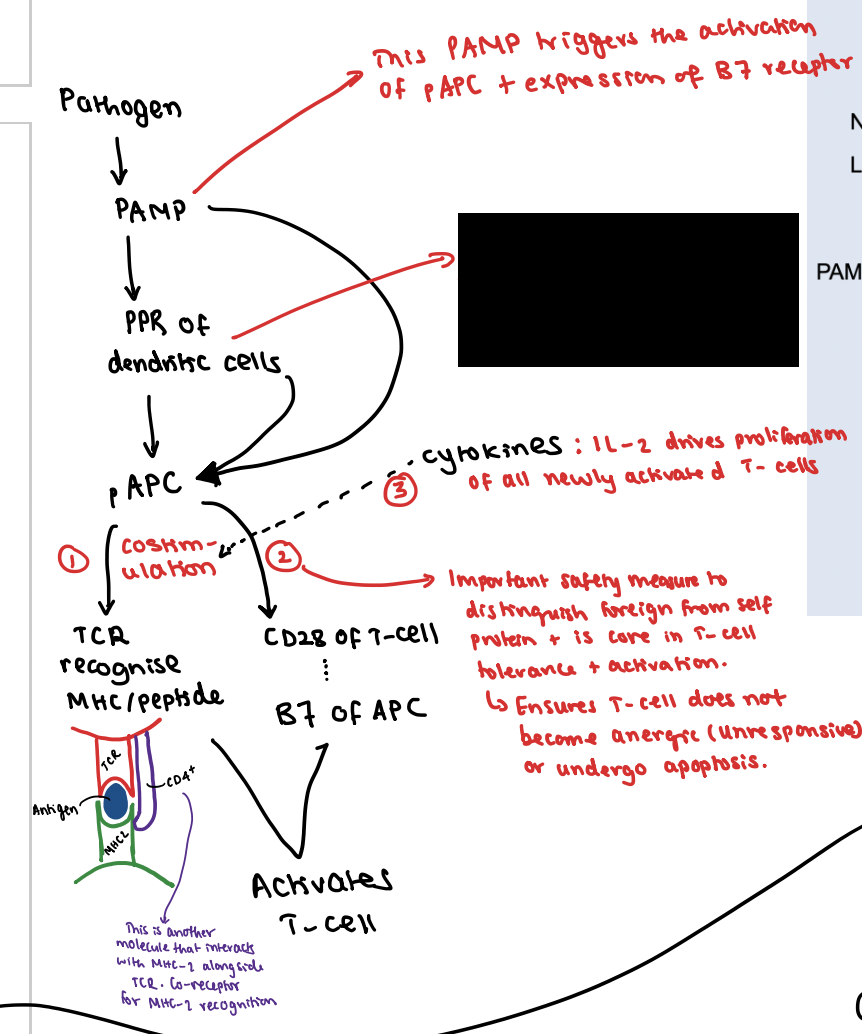 This PAMP triggers the activation
of pAPC + expression of B7 receptor
Pathogen
N
L
PAMP
PAM
PPR of
dendritic cells
cytokines : IL-2 drives proliferation
of all newly activated T-cells
3
pAPC
1
costim-
ulation
2
Important safety measure to
distinguish foreign from self
protein + is core in T-cell
tolerance + activation.
↳ Ensures T-cell does not
become anergic (unresponsive)
or undergo apoptosis.
TCR
recognise
MHC/peptide
CD28 of T-cell
B7 of APC
TCR
CD4+
Antigen
MHC2
Activates
T-cell
This is another
molecule that interacts
with MHC-2 alongside
TCR. Co-receptor
for MHC-2 recognition